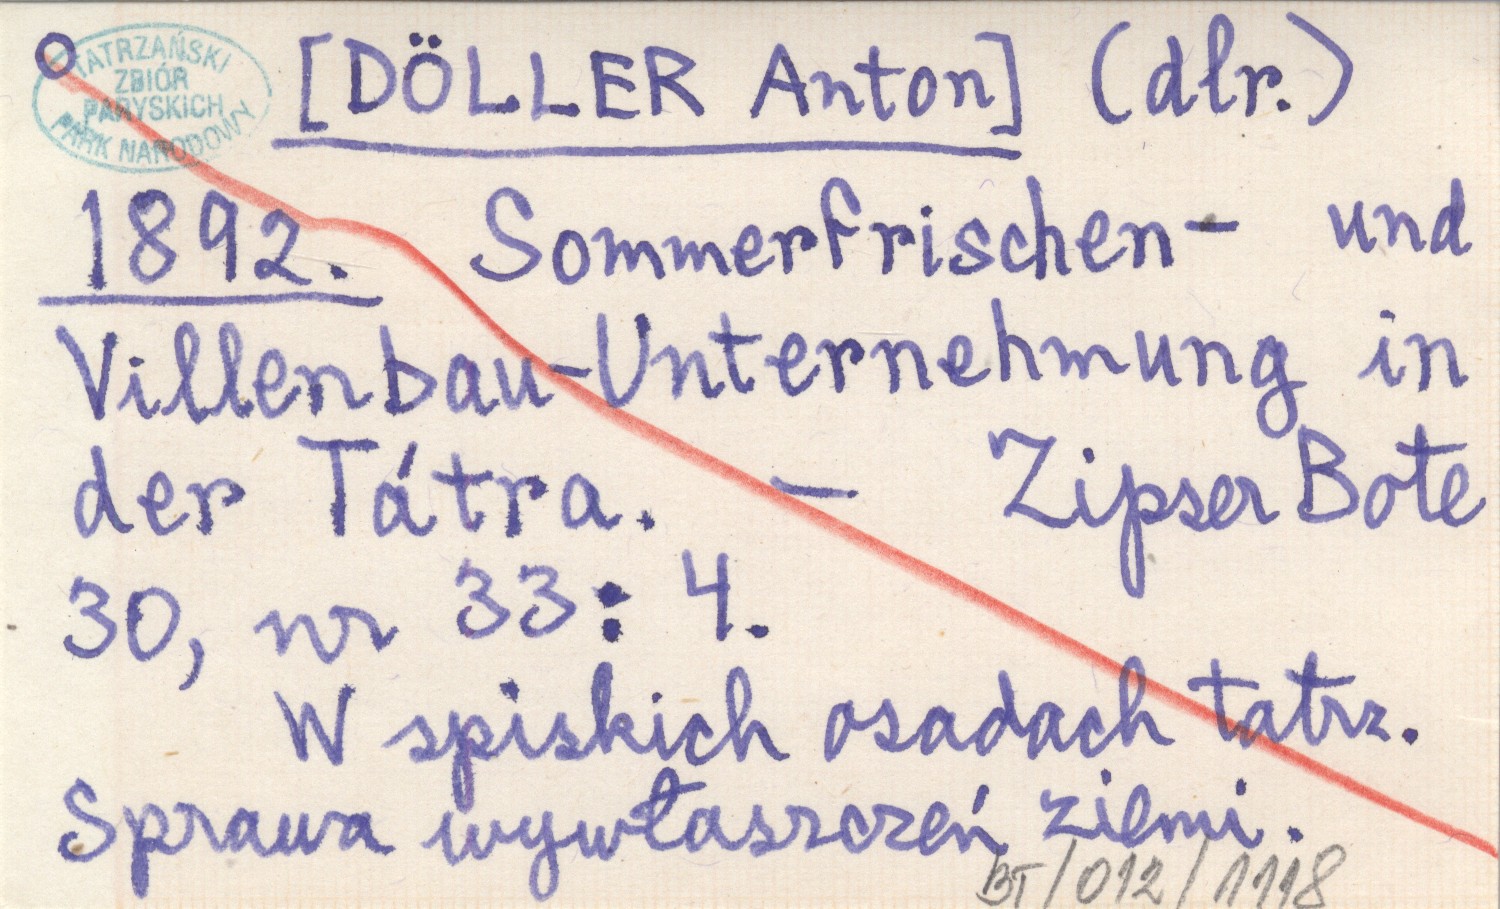 TATRZAŃSKI
ZBIÓR
PARYSKICH
PARK NARODOWY
[DÖLLER Anton] (dlr.)
1892. Sommerfrischen- und
Villenbau-Unternehmung in
der Tátra. — Zipser Bote
30, nr 33: 4.
W spiskich osadach tatrz.
Sprawa wywłaszczeń ziemi.
BT/012/1118